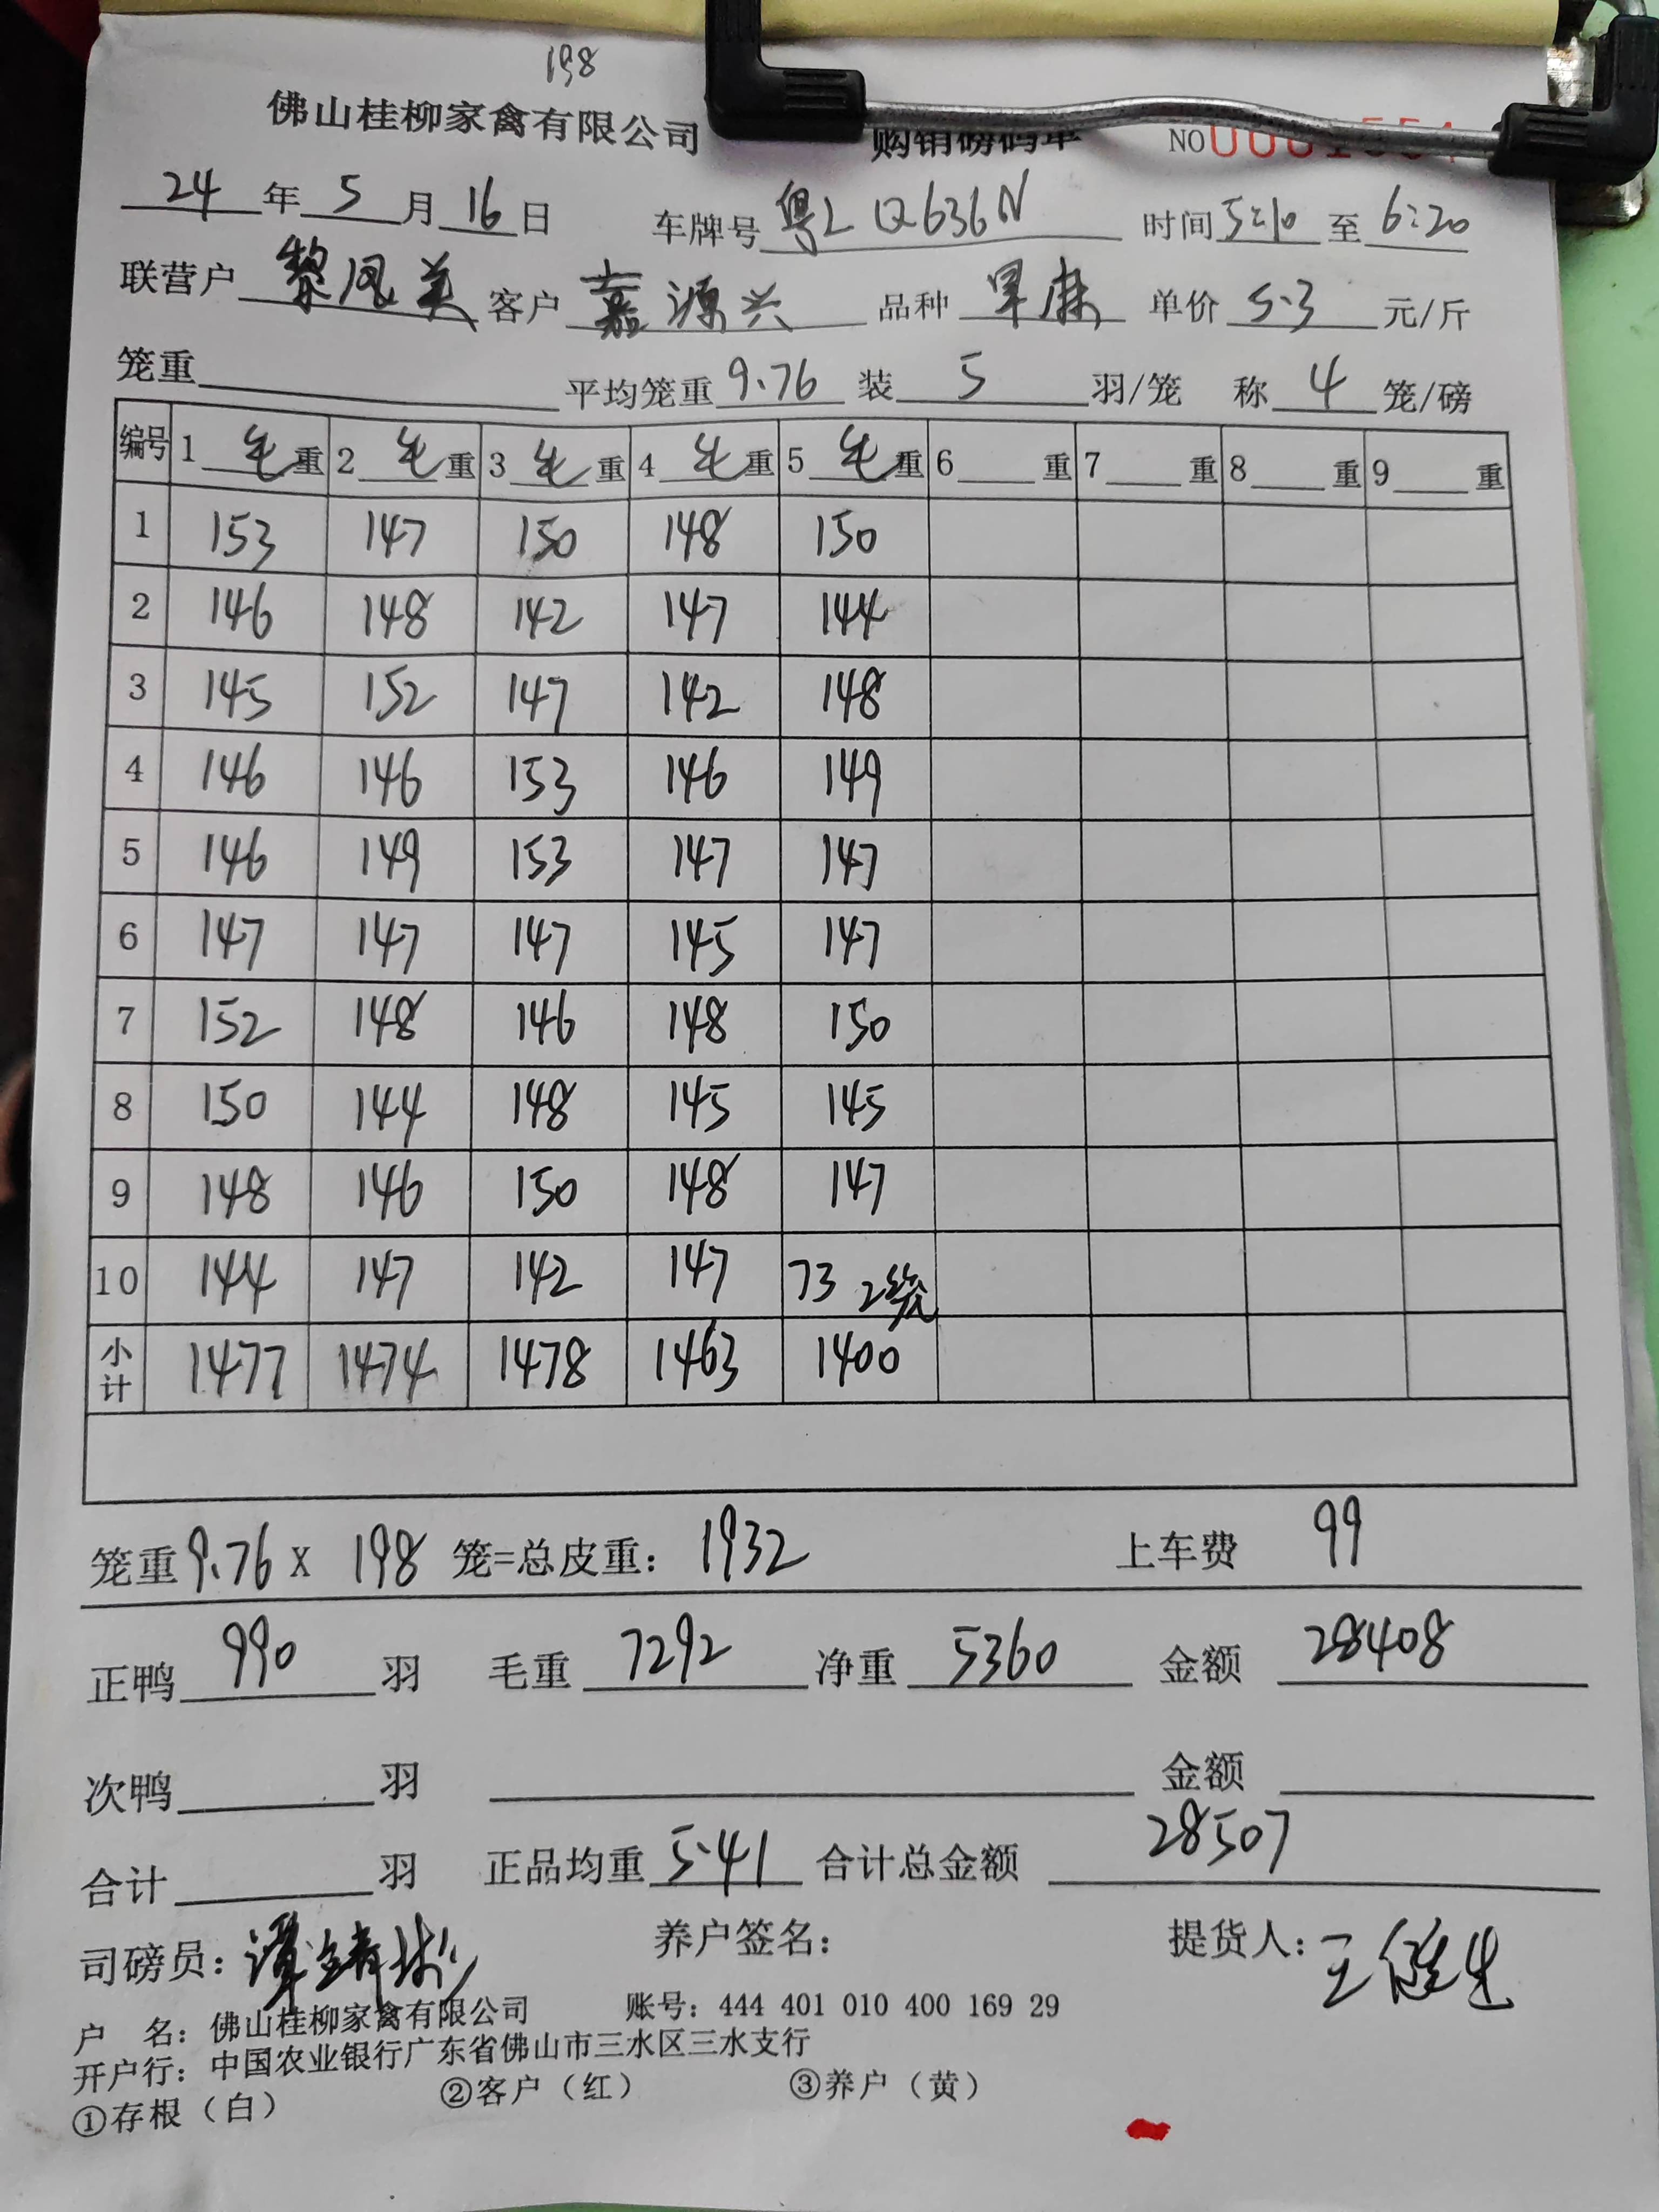 198
佛山桂柳家禽有限公司 购销磅码单 NO
24年5月16日 车牌号 粤L Q636N 时间 5:10 至 6:20
联营户 黎凤美 客户 嘉源兴 品种 旱麻 单价 5.3 元/斤
笼重 平均笼重 9.76 装 5 羽/笼 称 4 笼/磅
编号 1 毛重 2 毛重 3 毛重 4 毛重 5 毛重 6 重 7 重 8 重 9 重
1 153 147 150 148 150
2 146 148 142 147 144
3 145 152 147 142 148
4 146 146 153 146 149
5 146 149 153 147 147
6 147 147 147 145 147
7 152 148 146 148 150
8 150 144 148 145 145
9 148 146 150 148 147
10 144 147 142 147 73 2笼
小计 1477 1474 1478 1463 1400
笼重 9.76 X 198 笼=总皮重: 1932 上车费 99
正鸭 990 羽 毛重 7292 净重 5360 金额 28408
次鸭 羽 金额
合计 羽 正品均重 5.41 合计总金额 28507
司磅员: 养户签名: 提货人:
户 名: 佛山桂柳家禽有限公司 账号: 444 401 010 400 169 29
开户行: 中国农业银行广东省佛山市三水区三水支行
①存根（白） ②客户（红） ③养户（黄）